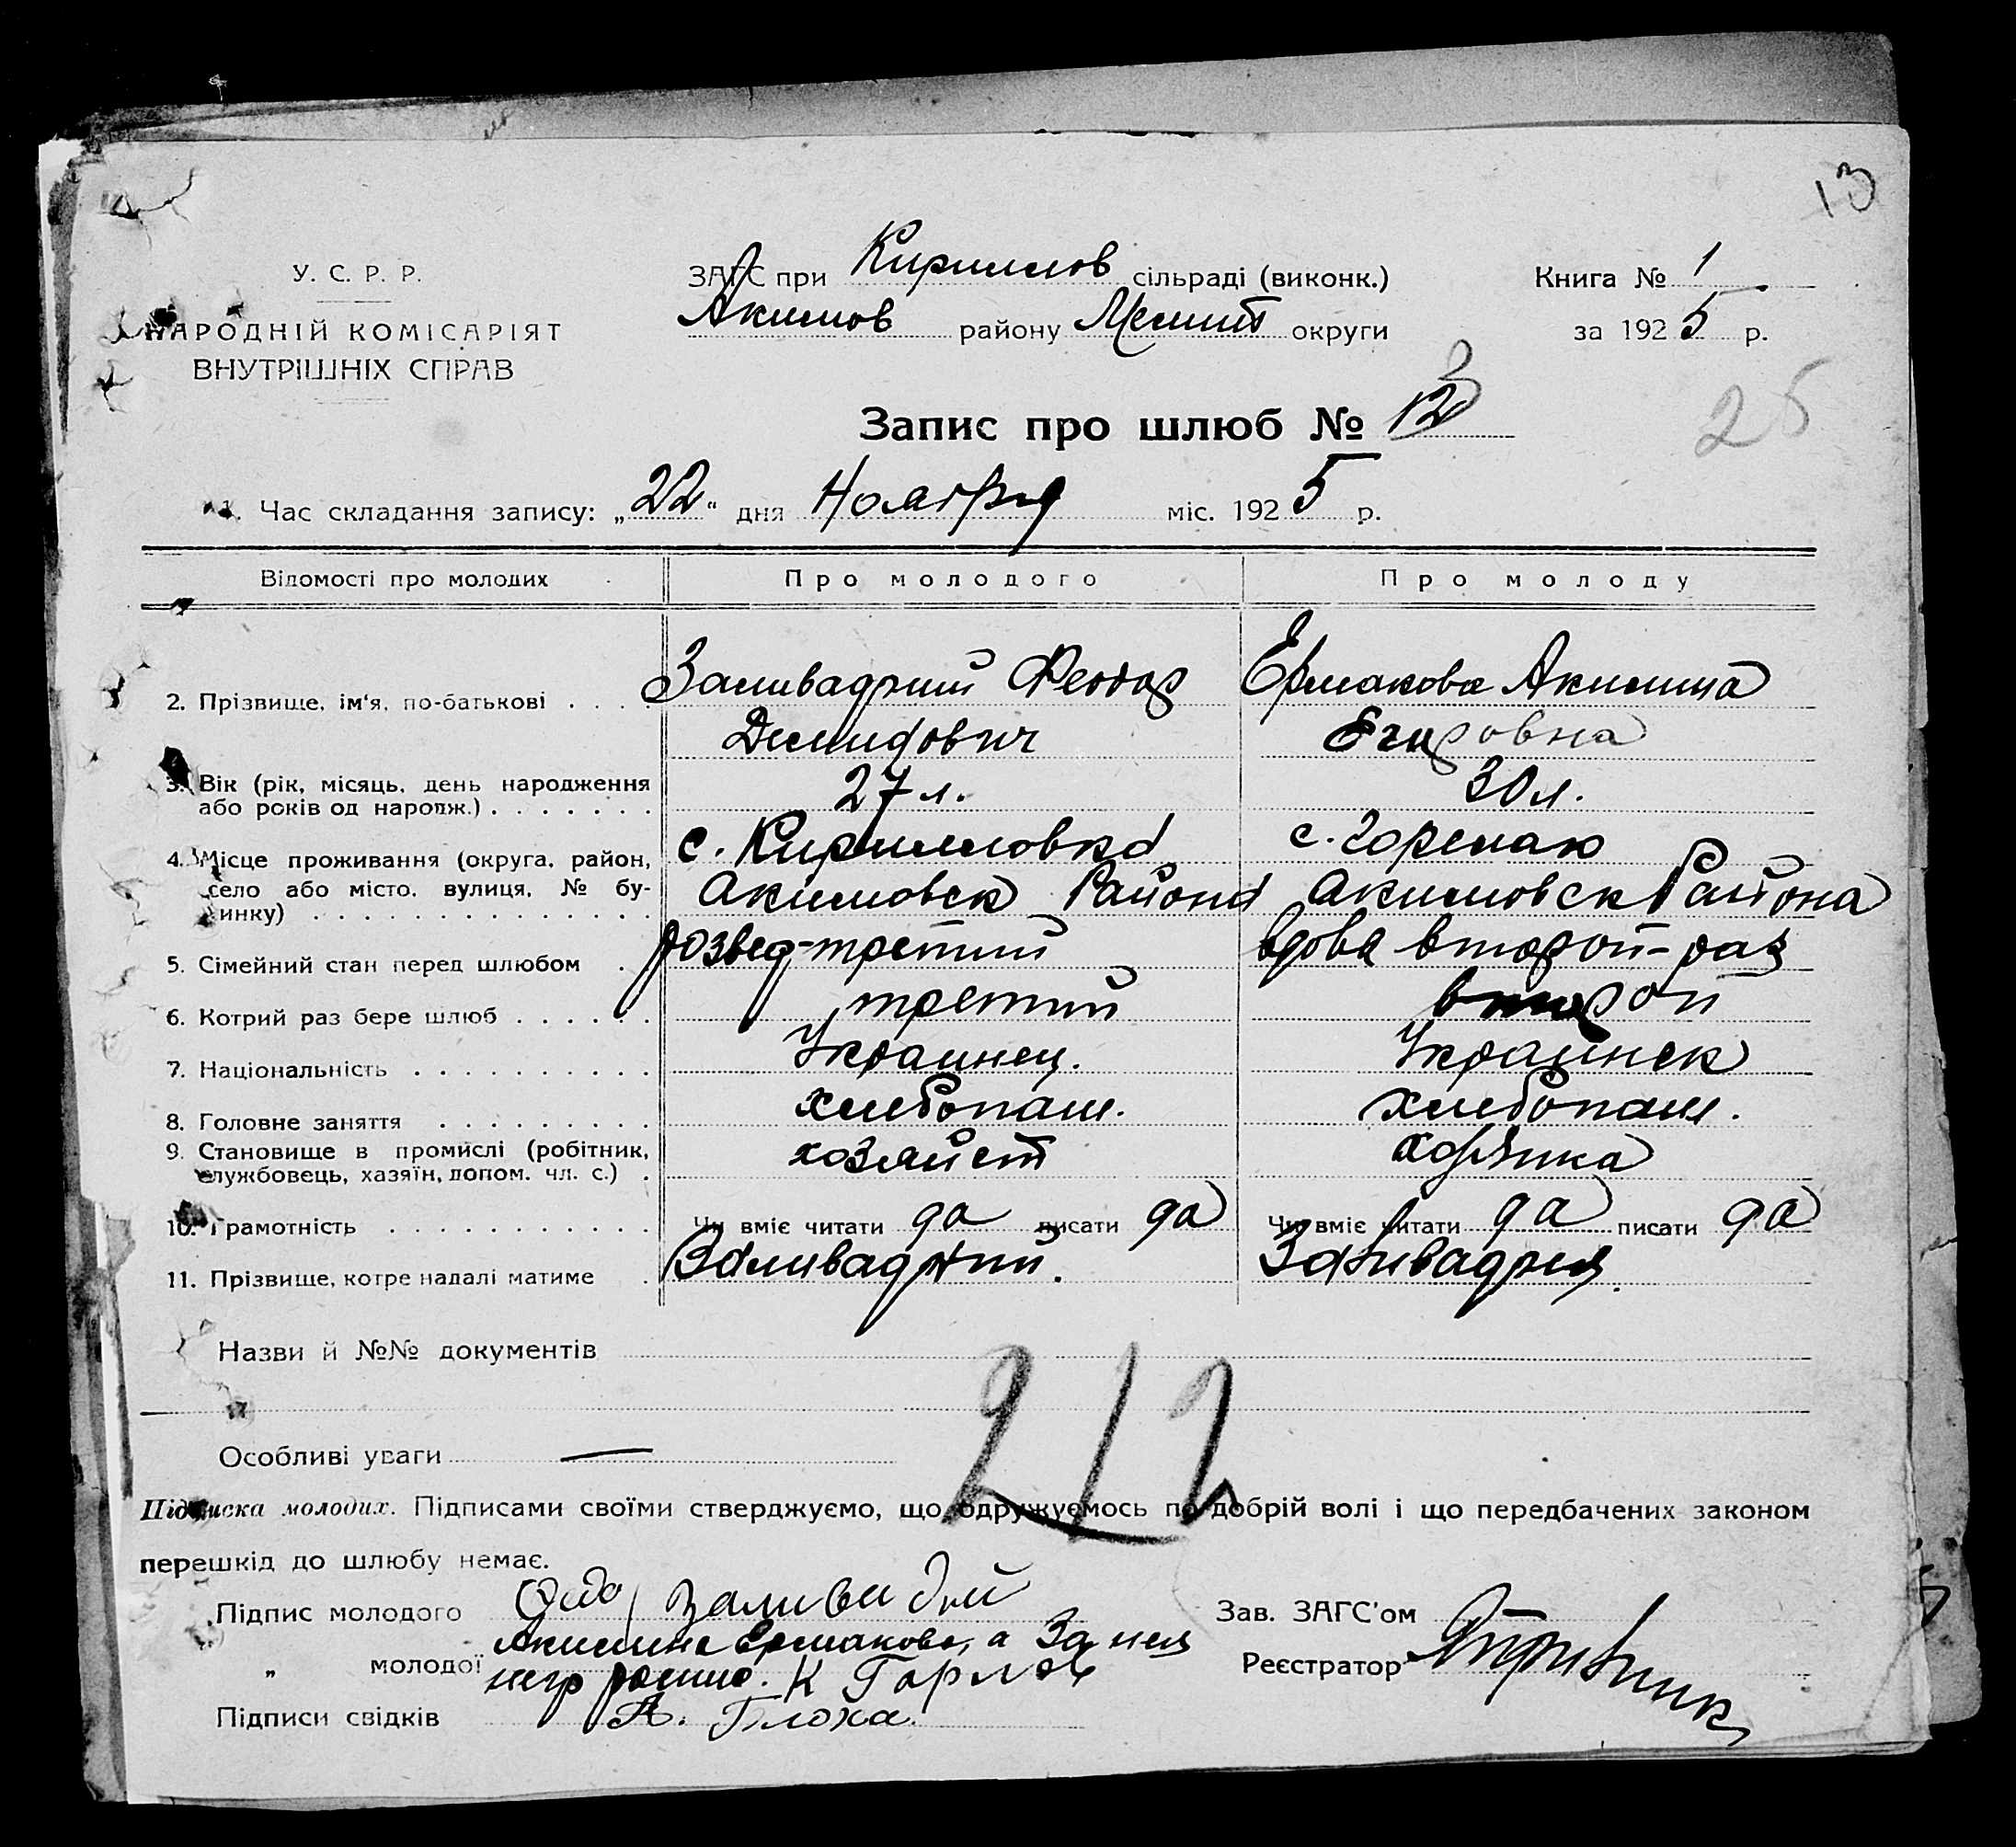 13
У. С. Р. Р.
НАРОДНІЙ КОМІСАРІЯТ
ВНУТРІШНІХ СПРАВ
ЗАГС при Кириллов сільраді (виконк.)
Акимов району Мелит округи
Книга № 1
за 1925 р.
25
Запис про шлюб № 13
1. Час складання запису: „22" дня Ноября міс. 1925 р.
Відомості про молодих Про молодого Про молоду
2. Прізвище, ім'я, по-батькові . . . Заливадний Феодор Ермакова Акилина
Демидович Егоровна
3. Вік (рік, місяць, день народження 27 л. 30 л.
або років од народж.) . . . . . . .
4. Місце проживання (округа, район, с. Кирилловка с. Горелаю
село або місто, вулиця, № бу- Акимовск Района Акимовск Района
динку) . . . . . . . . . . . . . .
5. Сімейний стан перед шлюбом . развед-третий вдова второй-раз
6. Котрий раз бере шлюб . . . . . . третий второй
7. Національність . . . . . . . . . . Украинец. Украинск
8. Головне заняття . . . . . . . . . хлебопаш. хлебопаш.
9. Становище в промислі (робітник, хозяйст
службовець, хазяїн, допом. чл. с.) .
10. Грамотність . . . . . . . . . . . Чи вміє читати да писати да Чи вміє читати да писати да
11. Прізвище, котре надалі матиме . Заливадний. Заливадная.
Назви й №№ документів
212
Особливі уваги —
Підписка молодих. Підписами своїми стверджуємо, що одружуємось по добрій волі і що передбачених законом
перешкід до шлюбу немає.
Підпис молодого Заливадний
Зав. ЗАГС'ом
Акилина Ермакова, а за нея
„ молодої негр роспис. К Горлов
Реєстратор
Підписи свідків А. Плоха.